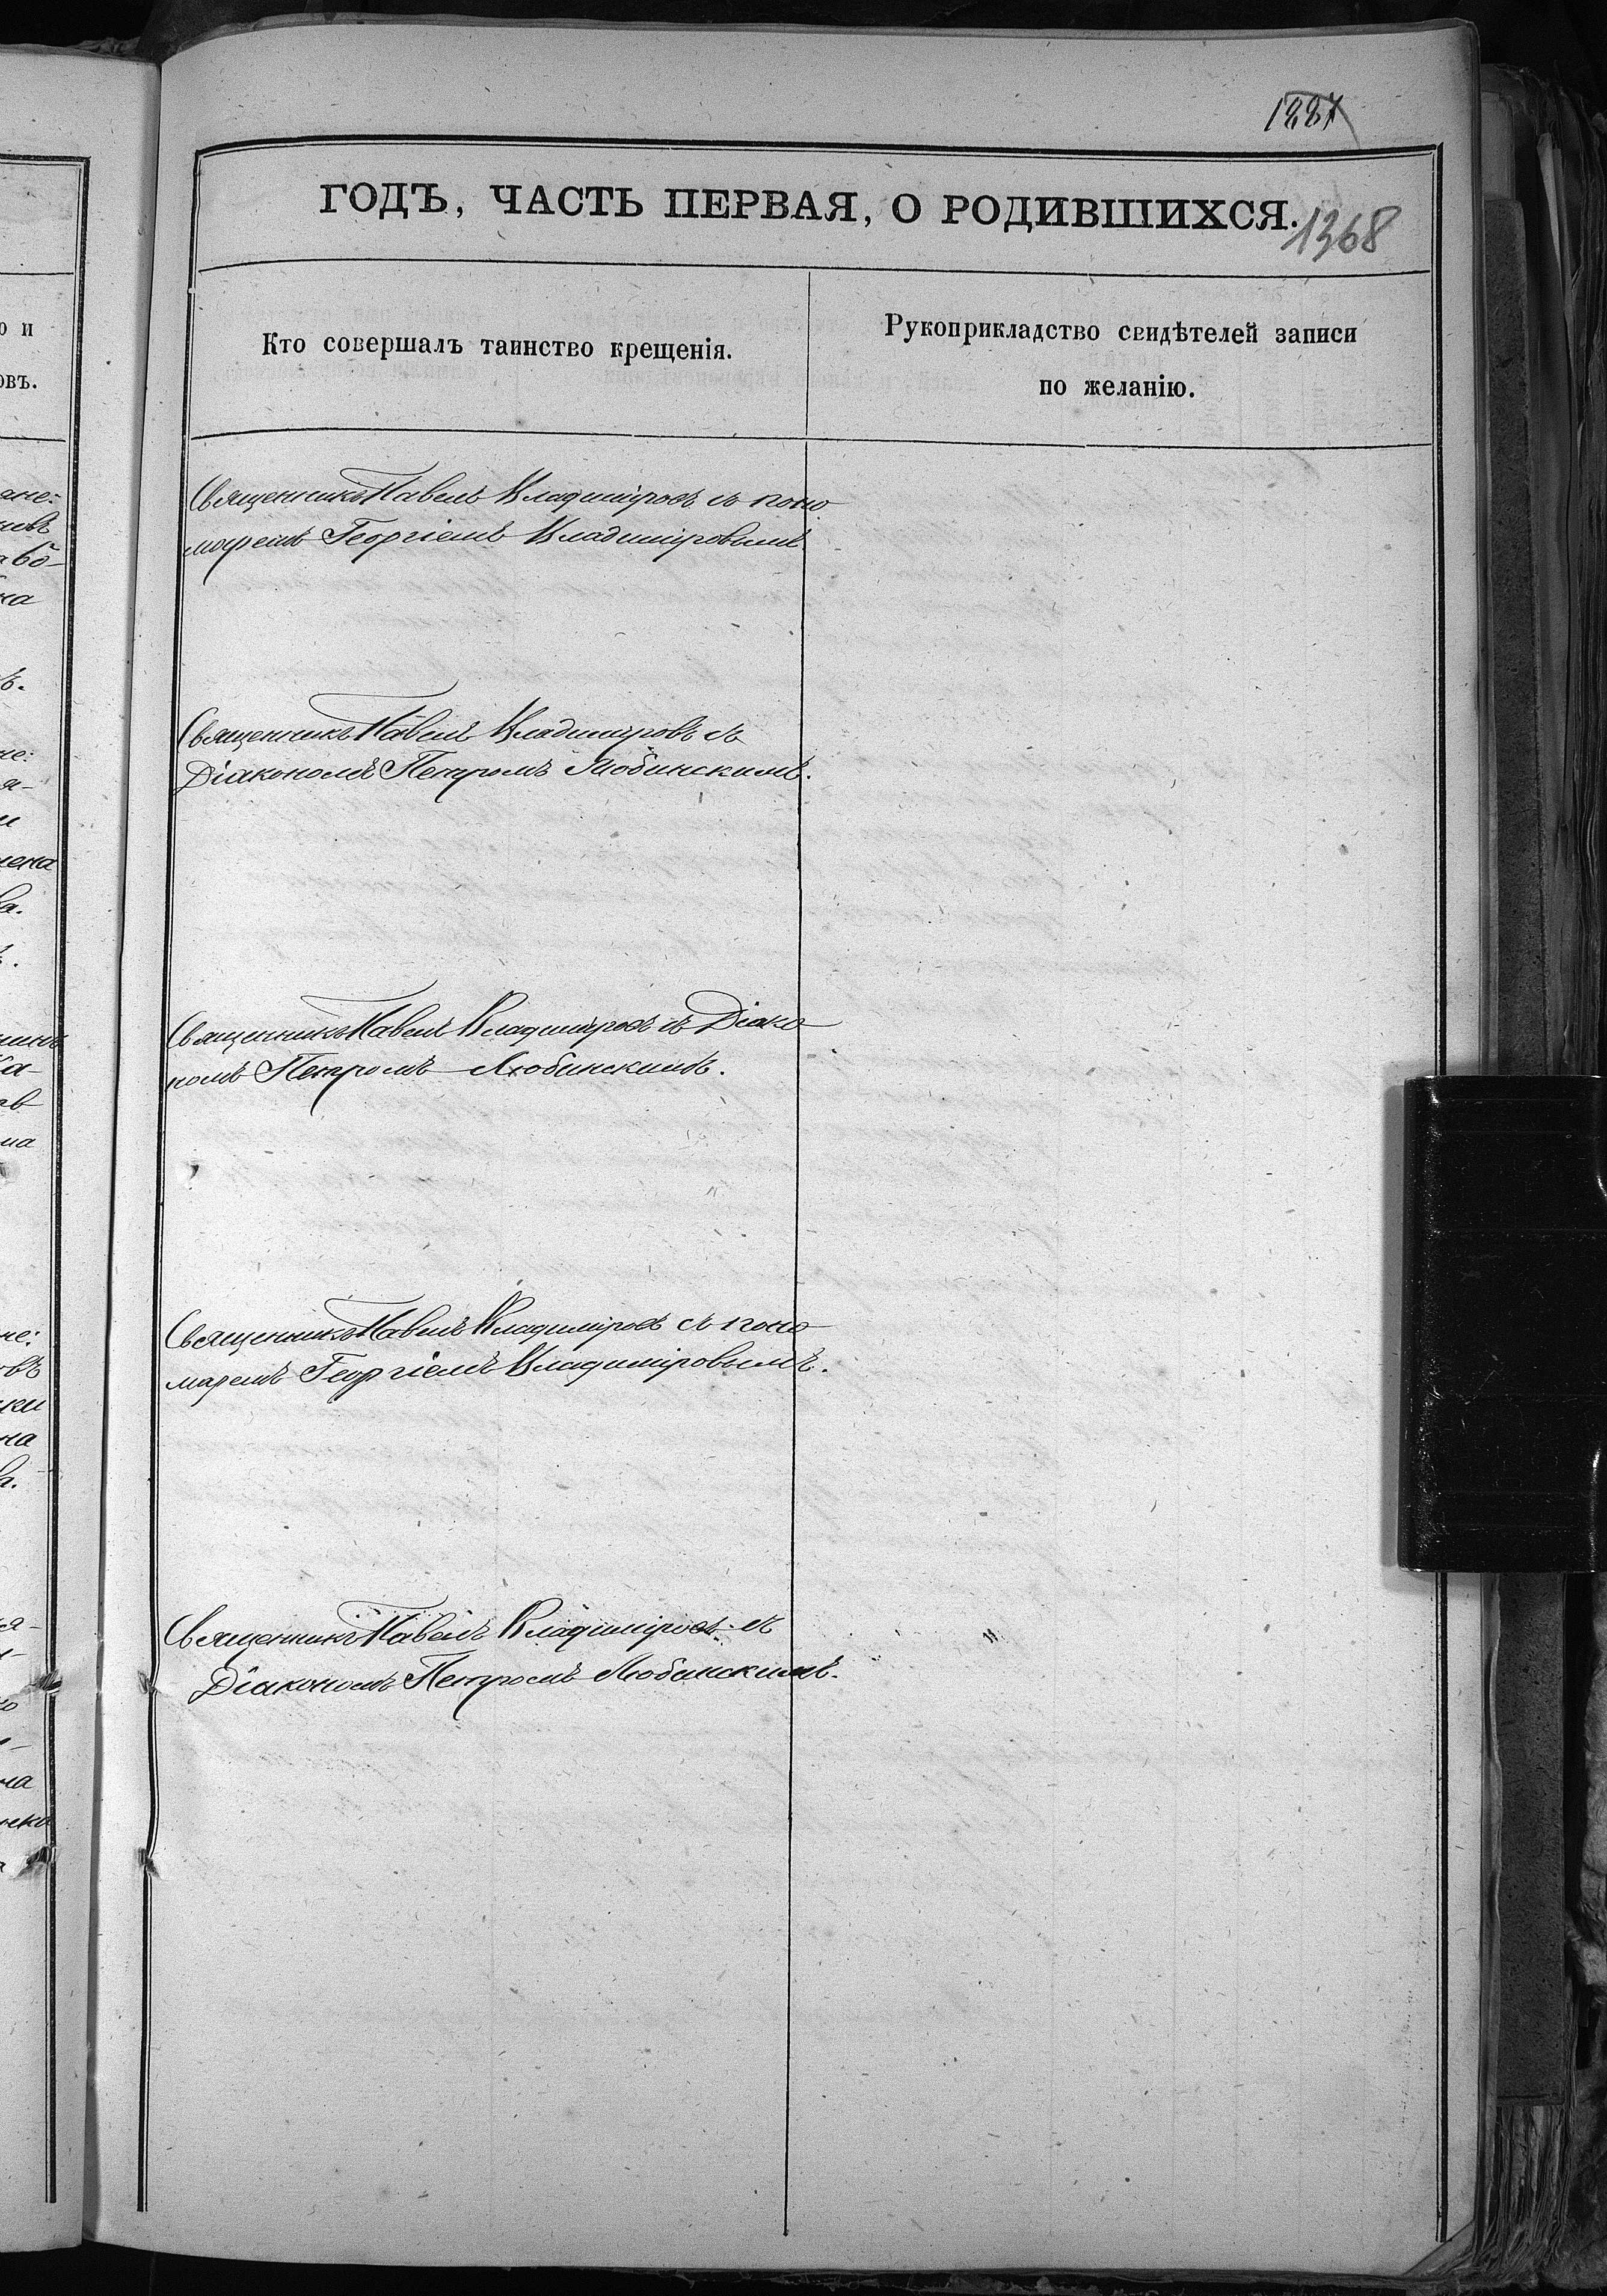 1227
ГОДЪ, ЧАСТЬ ПЕРВАЯ, О РОДИВШИХСЯ.
1368
Кто совершалъ таинство крещенія.
Рукоприкладство свидѣтелей записи
по желанію.
Священникъ Павелъ Владиміровъ съ поно
маремъ Георгіемъ Владиміровымъ
Священникъ Павелъ Владиміровъ съ
Діакономъ Петромъ Любинскимъ.
Священникъ Павелъ Владиміровъ съ Діако
номъ Петромъ Любинскимъ.
Священникъ Павелъ Владиміровъ съ поно
маремъ Георгіемъ Владиміровымъ.
Священникъ Павелъ Владиміровъ съ
Діакономъ Петромъ Любинскимъ.